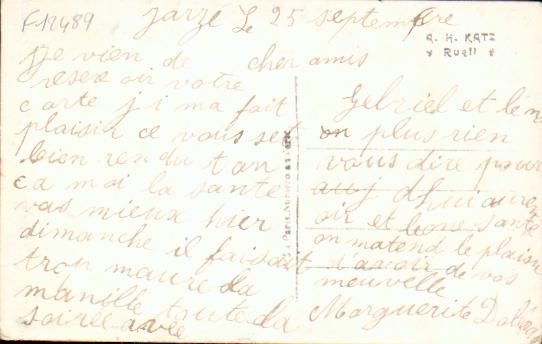 F12489
Jarzé Le 25 septembre
A. H. KATZ
* Rueil *
cher amis
je vien de
resevoir votre
carte j i ma fait
plaisir ce vous set
bien rendu tan
ca moi la sante
vas mieux hier
dimanche il faisait
tron
manille toute la
soirée avec
Gebriel et
on plus rien
vous dire pour
auj dhui aure
oir et bone sante
on matend le plaisir
d'avoir de vos
neuvelle
Marguerite